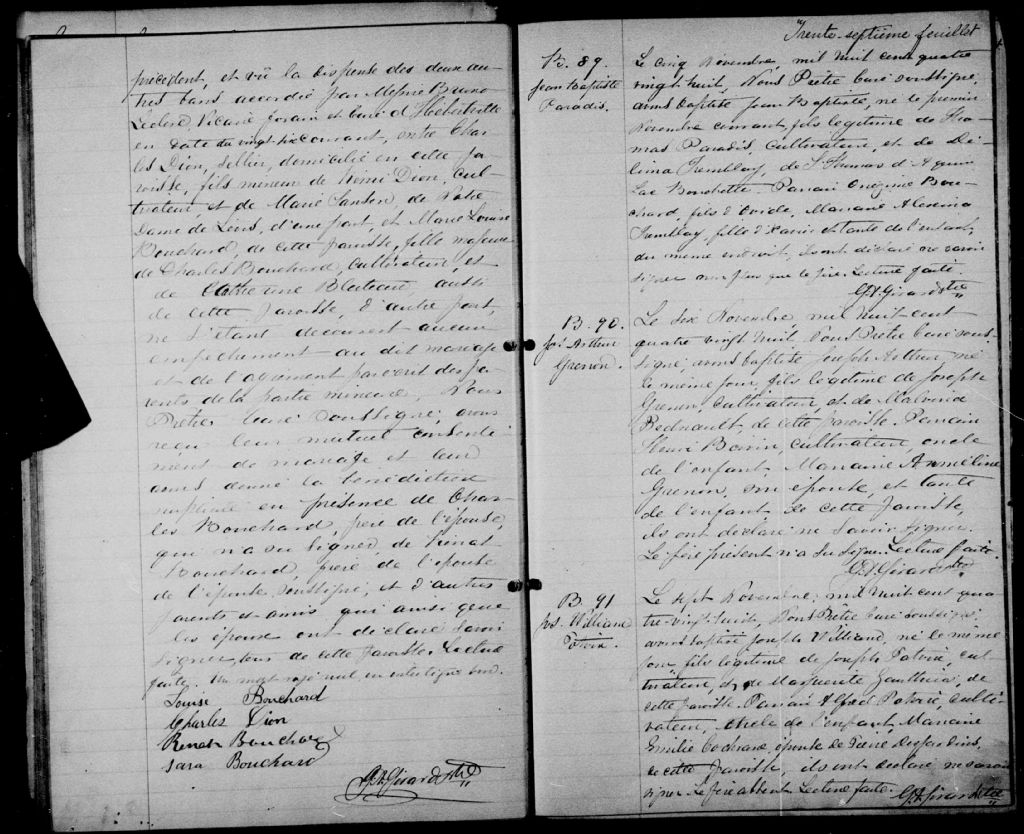 précédent, et vû la dispense des deux au-
tres bans accordée par Messire Bruno
Leclerc, Vicaire forain et Curé d'Hébertville
en date du vingt-six courant, entre Char-
les Dion, sellier, domicilié en cette Pa-
roisse, fils mineur de Rémi Dion, cul-
tivateur, et de Marie Samson, de Notre
Dame de Lévis, d'une part, et Marie Louise
Bouchard, de cette Paroisse, fille majeure
de Charles Bouchard, cultivateur, et
de Catherine Blateau, aussi
de cette Paroisse, d'autre part,
ne s'étant découvert aucun
empêchement au dit mariage
et de l'agrément par écrit des pa-
rents de la partie mineure, Nous
Prêtre Curé soussigné, avons
reçu leur mutuel consente-
ment de mariage et leur
avons donné la bénédiction
nuptiale en présence de Char-
les Bouchard, père de l'épouse
qui n'a su signer, de Rénat
Bouchard, frère de l'épouse
de l'épouse soussigné, et d'autres
parents et amis qui ainsi que
les époux ont déclaré savoir
signer, tous de cette Paroisse. Lecture
faite. Un mot rayé nul, un interligne bon.
Louise Bouchard
Charles Dion
Renat Bouchard
Sara Bouchard
G. A. Girard Ptre
Trente-septième feuillet
B. 89.
Jean Baptiste
Paradis.
Le cinq Novembre, mil huit cent quatre
vingt huit, Nous Prêtre Curé soussigné,
avons baptisé Jean Baptiste, né le premier
Novembre courant, fils légitime de Tho-
mas Paradis, cultivateur, et de Dé-
lima Tremblay, de St Thomas d'Aquin
Lac Bouchette. Parrain Onézime Bou-
chard, fils d'Ovide, Marraine Alexina
Tremblay, fille d'Xavier et tante de l'enfant,
du même endroit, ils ont déclaré ne savoir
signer non plus que le père. Lecture faite.
G. A. Girard Ptre
B. 90.
Jos. Arthur
Grenon.
Le six Novembre mil huit cent
quatre vingt huit, Nous Prêtre Curé sous-
signé, avons baptisé Joseph Arthur né
le même jour, fils légitime de Joseph
Grenon, cultivateur, et de Malvina
de cette Paroisse. Parrain
Henri Boivin, cultivateur, oncle
de l'enfant, Marraine Arméline
Grenon, son épouse, et tante
de l'enfant de cette Paroisse,
ils ont déclaré ne savoir signer.
Le père présent n'a su signer. Lecture faite.
G. A. Girard Ptre
B. 91
Jos. William
Potvin.
Le sept Novembre, mil huit cent qua-
tre-vingt huit, Nous Prêtre Curé soussigné,
avons baptisé Joseph William, né le même
jour fils légitime de Joseph Potvin, cul-
tivateur, et de Marguerite Gauthier, de
cette Paroisse. Parrain Alfred Potvin, culti-
vateur, oncle de l'enfant, Marraine
Emilie Cochrane, épouse de Pierre Desjardins,
de cette Paroisse, ils ont déclaré ne savoir
signer. Le père absent. Lecture faite. G. A. Girard Ptre